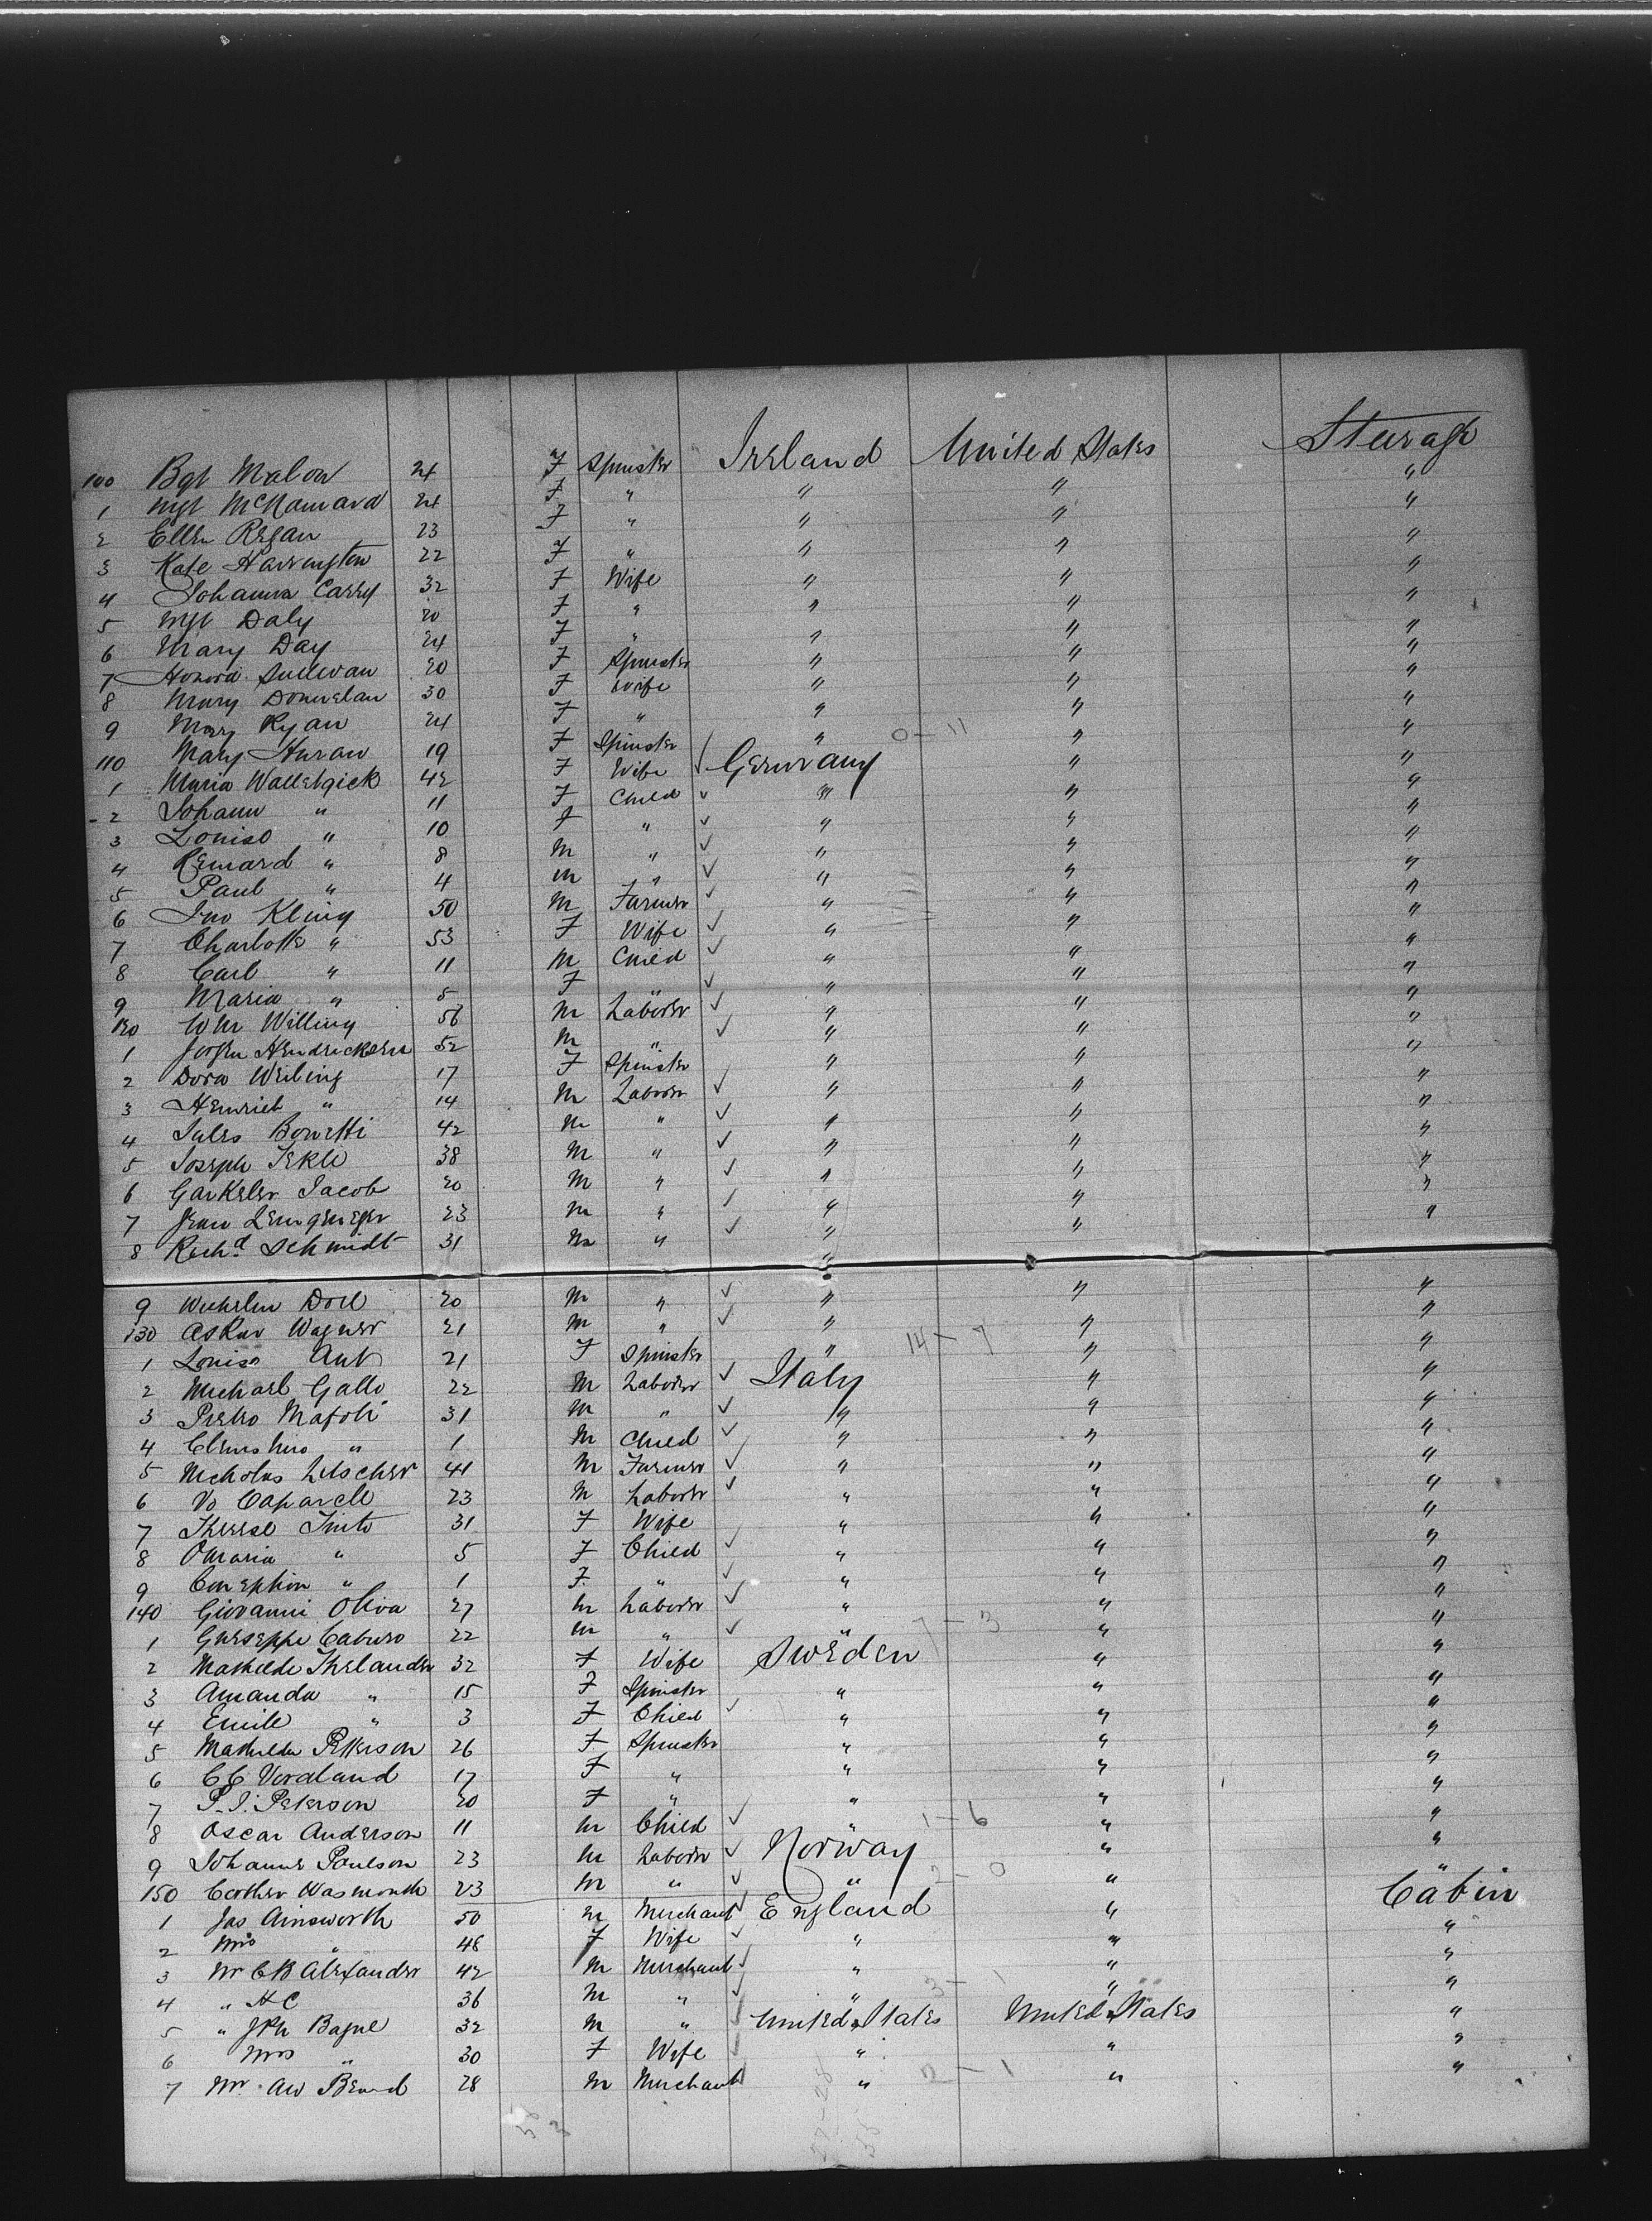 100 Bgt Malon 24 F Spinster Ireland United States Steerage
1 Mgt McNamara 24 F " " " "
2 Ellen Regan 23 F " " " "
3 Kate Harrington 22 F " " " "
4 Johanna Casey 32 F Wife " " "
5 Mgt Daly 20 F " " " "
6 Mary Day 24 F " " " "
7 Honora Sullivan 20 F Spinster " " "
8 Mary Donnelan 30 F Wife " " "
9 Mary Ryan 24 F " " " "
110 Mary Huran 19 F Spinster " 0-11 " "
1 Maria 42 F Wife Germany " "
2 Johann " 11 F Child " " "
3 Louise " 10 F " " " "
4 " 8 M " " " "
5 Paul " 4 M " " " "
6 Jno Kling 50 M Farmer " " "
7 Charlotte " 53 F Wife " " "
8 Carl " 11 M Child " " "
9 Maria " 5 F " " " "
120 Wm Willing 56 M Laborer " " "
1 Hendricksen 52 M " " " "
2 Dora Weiling 17 F Spinster " " "
3 Heinrich " 14 M Laborer " " "
4 Jules Bonetti 42 M " " " "
5 Joseph 38 M " " " "
6 Garkeler Jacob 20 M " " " "
7 Jean 23 M " " " "
8 Richd Schmidt 31 M " " " "
9 Wilhelm 20 M " " " "
130 Askar Wagner 21 M " " " "
1 Louisa 21 F Spinster " 14-7 " "
2 Michael Gallo 22 M Laborer Italy " "
3 Pietro Mafoli 31 M " " " "
4 " 1 M Child " " "
5 Nicholas 41 M Farmer " " "
6 Vo Caparell 23 M Laborer " " "
7 Therese 31 F Wife " " "
8 Maria " 5 F Child " " "
9 Conception " 1 F. " " " "
140 Giovanni Oliva 27 M Laborer " " "
1 Guseppe Caburo 22 M " " 7-3 " "
2 Mathilde Thelander 32 F Wife Sweden " "
3 Amanda " 15 F Spinster " " "
4 Emile " 3 F Child " " "
5 Mathilda Petterson 26 F Spinster " " "
6 C C Vordland 17 F " " " "
7 P. J. Peterson 20 F " " " "
8 Oscar Anderson 11 M Child " 1-6 " "
9 Johanne Poulson 23 M Laborer Norway " "
150 Wasmonth 23 M " " 2-0 " "
1 Jas Ainsworth 50 M Merchant England " Cabin
2 Mrs " 48 F Wife " " "
3 Mr C B Alexander 42 M Merchant " " "
4 " H C 36 M " " 3-1 " "
5 " Jph Bagne 32 M " United States United States "
6 Mrs " 30 F Wife " " "
7 Mr. Aw Beard 28 M Merchant " 2-1 " "